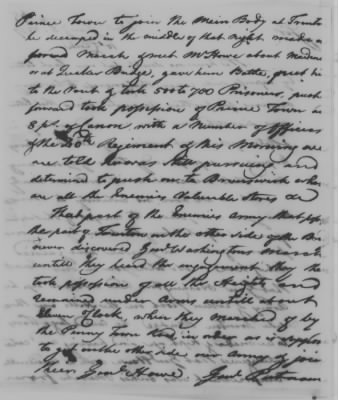 Prince Town to join the Main Body at Trenton
he decamped in the middle of that night, made a
forced March & met Mr Howe about
or at Quaker Bridge, gave him Battle, put him
to the Rout & took 500 to 700 Prisoners, push
forward took possession of Prince Town in
8 ps of Canon with a Number of Officers
of the 40th Regiment & this Morning are
are told Knows still pursuing and
determined to push on to Brunswick where
are all the Enemies Valuable Stores &c
That part of the Enemies Army that
the part of Trenton on the other side of the
never discovered Genl Washingtons March
untill they heard the engagement they the
took possession of all the Heights and
remained under Arms untill about
Eleven O Clock, when they Marched of by
the Penny Town Road in order as is suppos
to get on the other side our Army & join
their Genl Howe. Genl Putnam